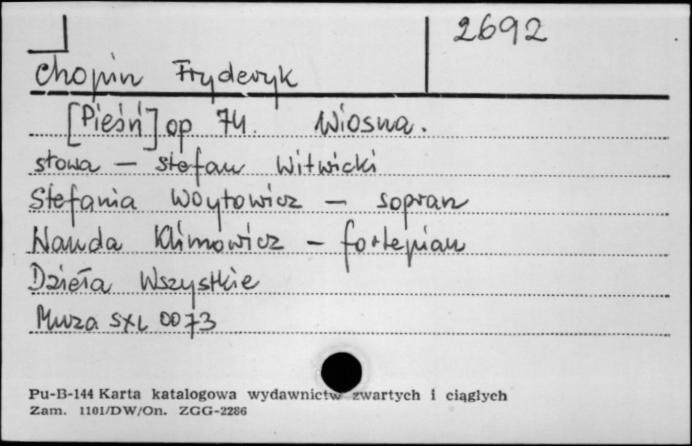 2692
Chopin Fryderyk
[Pieśń] op 74. Wiosna.
słowa – Stefan Witwicki
Stefania Woytowicz – sopran
Wanda Klimowicz – fortepian
Dzieła Wszystkie
Muza SXL 0073
Pu-B-144 Karta katalogowa wydawnictw zwartych i ciągłych
Zam. 1101/DW/On. ZGG-2286